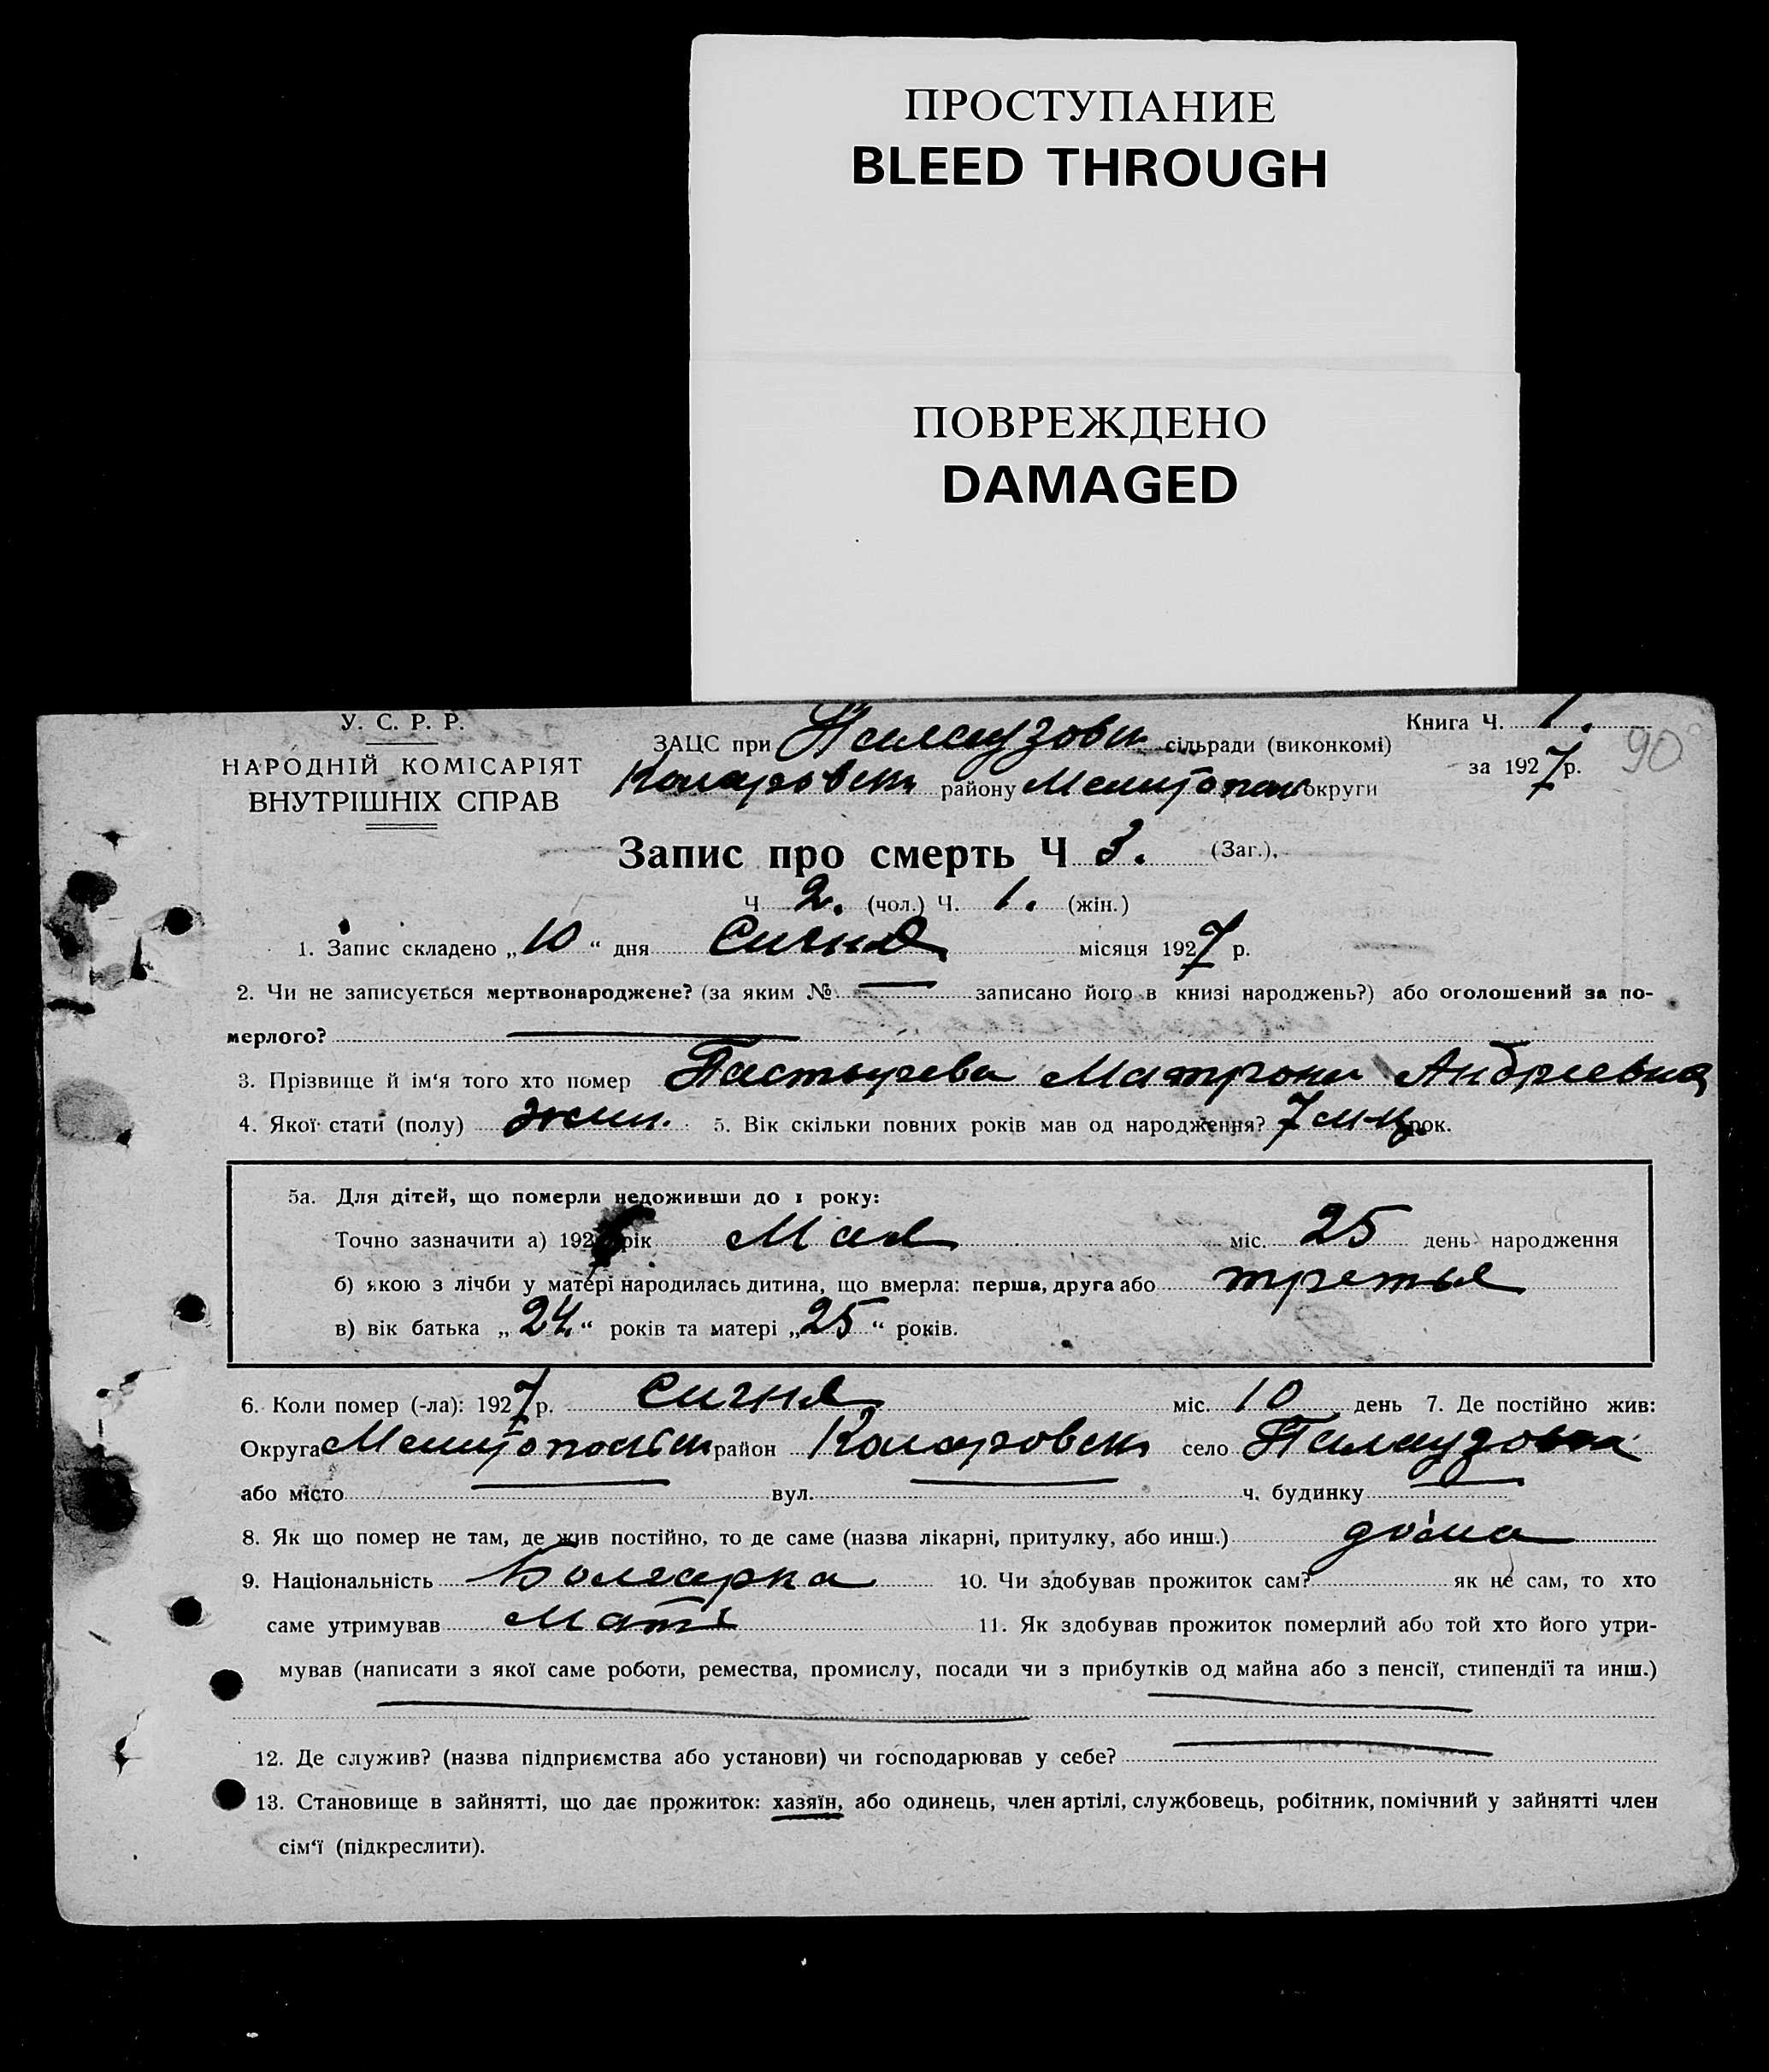 ПРОСТУПАНИЕ
BLEED THROUGH
ПОВРЕЖДЕНО
DAMAGED
У. С. Р. Р.
НАРОДНІЙ КОМІСАРІЯТ
ВНУТРІШНІХ СПРАВ
ЗАЦС при Палаузовк сільради (виконкомі)
Коларовськ району Мелитопол округи
Книга Ч. 1.
за 1927 р.
90
Запис про смерть Ч 3. (Заг.).
Ч 2. (чол.) Ч. 1. (жін.)
1. Запис складено „10“ дня Сичня місяця 1927 р.
2. Чи не записується мертвонароджене? (за яким № — записано його в книзі народжень?) або оголошений за по-
мерлого? —
3. Прізвище й ім‘я того хто помер Матрона Андриевна
4. Якої стати (полу) жин. 5. Вік скільки повних років мав од народження? 7 м-ц. рок.
5а. Для дітей, що померли недоживши до 1 року:
Точно зазначити а) 1926 рік Мая міс. 25 день народження
б) якою з лічби у матері народилась дитина, що вмерла: перша, друга або третья
в) вік батька „24“ років та матері „25“ років.
6. Коли помер (-ла): 1927 р. Сичня міс. 10 день 7. Де постійно жив:
Округа Мелитопольськ район Коларовськ село Палаузовка
або місто — вул. — ч. будинку —
8. Як що помер не там, де жив постійно, то де саме (назва лікарні, притулку, або инш.) дома
9. Національність Болгарка 10. Чи здобував прожиток сам? як не сам, то хто
саме утримував Мати 11. Як здобував прожиток померлий або той хто його утри-
мував (написати з якої саме роботи, ремества, промислу, посади чи з прибутків од майна або з пенсії, стипендії та инш.)
12. Де служив? (назва підприємства або установи) чи господарював у себе? —
13. Становище в зайнятті, що дає прожиток: хазяїн, або одинець, член артілі, службовець, робітник, помічний у зайнятті член
сім‘ї (підкреслити).